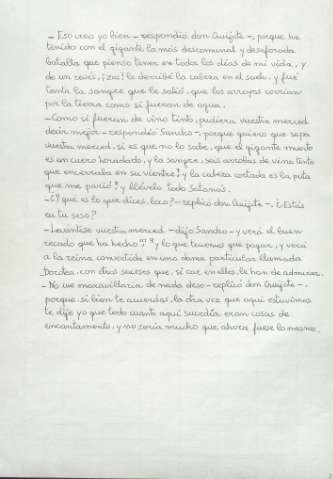 - Eso creo yo bien - respondió don Quijote -, porque he
tenido con el gigante la más descomunal y desaforada
batalla que pienso tener en todos los días de mi vida, y
de un revés, ¡zas! le derribé la cabeza en el suelo, y fué
tanta la sangre que le salió, que los arroyos corrían
por la tierra como si fueran de agua.
- Como si fueran de vino tinto, pudiera vuestra merced
decir mejor - respondió Sancho -, porque quiero que sepa
vuestra merced, si es que no lo sabe, que el gigante muerto
es un cuero horadado, y la sangre, seis arrobas de vino tinto
que encerraba en su vientre; y la cabeza cortada es la puta
que me parió, y llévelo todo Satanás.
- ¿Y qué es lo que dices, loco? - replicó don Quijote -. ¿Estás
en tu seso?
- Levántese vuestra merced - dijo Sancho - y verá el buen
recado que ha hecho y lo que tenemos que pagar, y verá
a la reina convertida en una dama particular llamada
Dorotea, con otros sucesos que, si cae en ellos, le han de admirar.
- No me maravillaría de nada deso - replicó don Quijote -,
porque, si bien te acuerdas, la otra vez que aquí estuvimos
te dije yo que todo cuanto aquí sucedía eran cosas de
encantamento, y no sería mucho que ahora fuese lo mesmo.